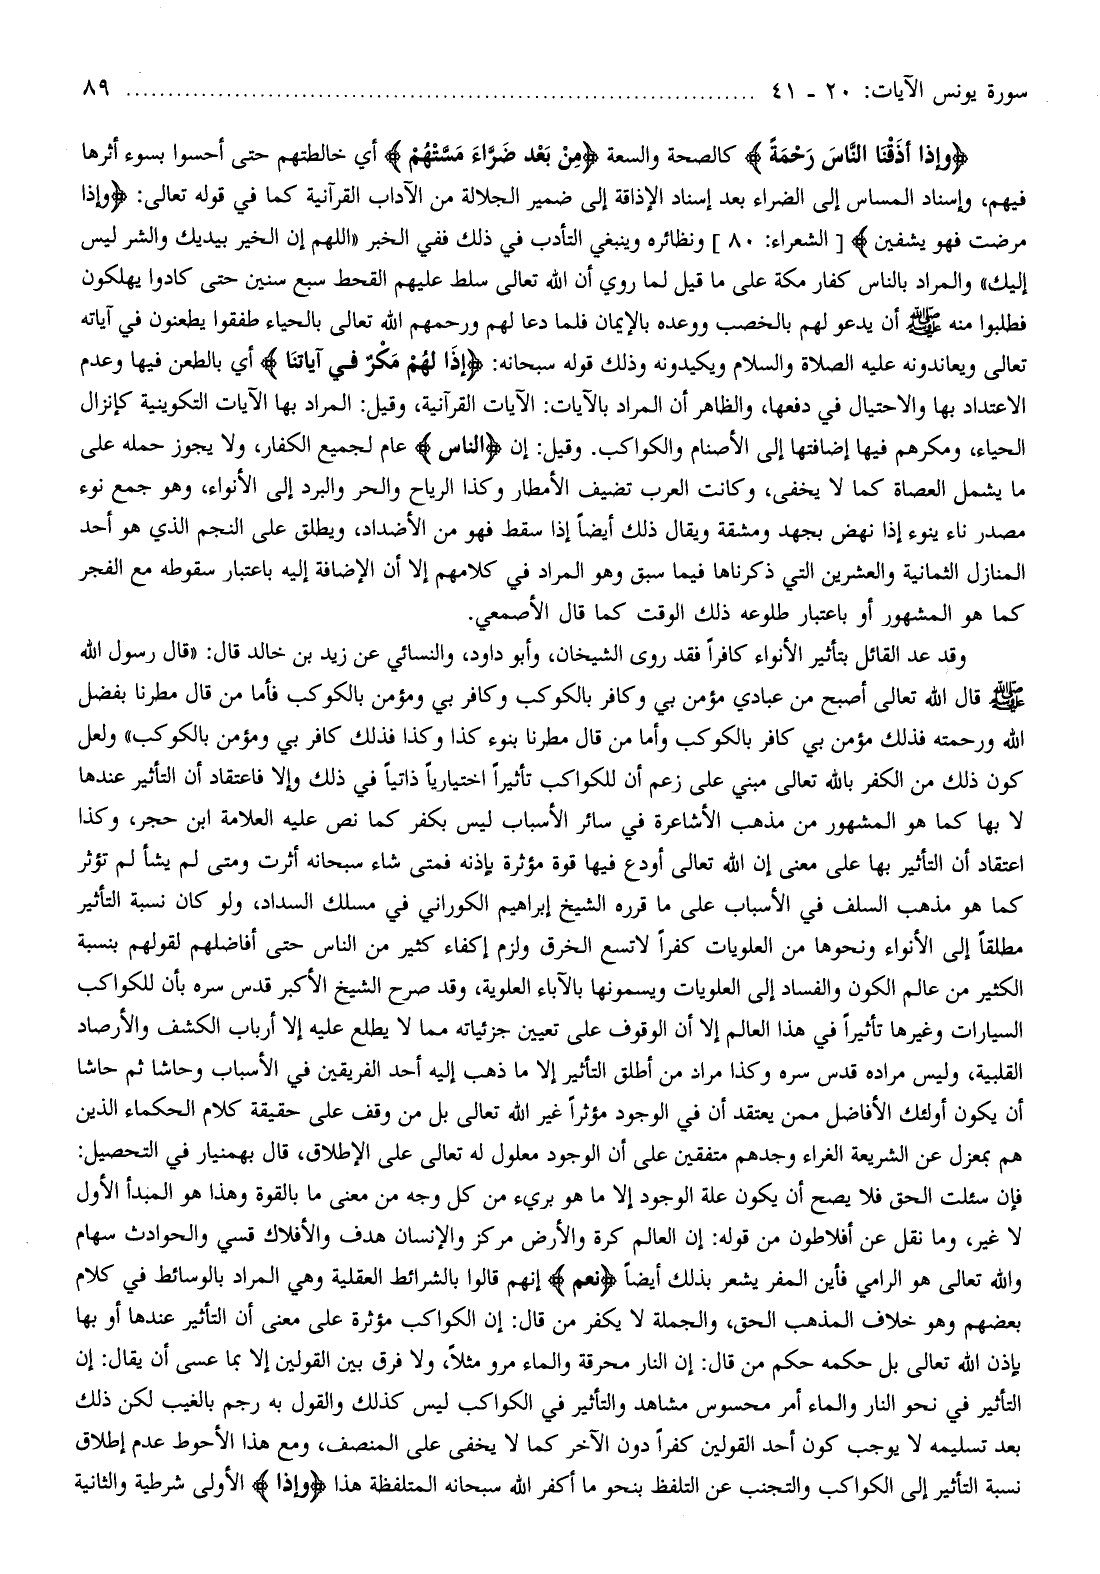 سورة يونس الآيات: ٢٠ - ٤١ ........................................................................... ٨٩
﴿وإذا أَذَقْنَا النَّاسَ رَحْمَةً﴾ كالصحة والسعة ﴿مِنْ بَعْد ضَرَّاءَ مَسَّتْهُمْ﴾ أي خالطتهم حتى أحسوا بسوء أثرها
فيهم، وإسناد المساس إلى الضراء بعد إسناد الإذاقة إلى ضمير الجلالة من الآداب القرآنية كما في قوله تعالى: ﴿وإذا
مرضت فهو يشفين﴾ [ الشعراء: ٨٠ ] ونظائره وينبغي التأدب في ذلك ففي الخبر «اللهم إن الخير بيديك والشر ليس
إليك» والمراد بالناس كفار مكة على ما قيل لما روي أن الله تعالى سلط عليهم القحط سبع سنين حتى كادوا يهلكون
فطلبوا منه ﷺ أن يدعو لهم بالخصب ووعده بالإيمان فلما دعا لهم ورحمهم الله تعالى بالحياء طفقوا يطعنون في آياته
تعالى ويعاندونه عليه الصلاة والسلام ويكيدونه وذلك قوله سبحانه: ﴿إذَا لهُمْ مَكْرٌ في آياتنَا﴾ أي بالطعن فيها وعدم
الاعتداد بها والاحتيال في دفعها، والظاهر أن المراد بالآيات: الآيات القرآنية، وقيل: المراد بها الآيات التكوينية كإنزال
الحياء، ومكرهم فيها إضافتها إلى الأصنام والكواكب. وقيل: إن ﴿الناس﴾ عام لجميع الكفار، ولا يجوز حمله على
ما يشمل العصاة كما لا يخفى، وكانت العرب تضيف الأمطار وكذا الرياح والحر والبرد إلى الأنواء، وهو جمع نوء
مصدر ناء ينوء إذا نهض بجهد ومشقة ويقال ذلك أيضاً إذا سقط فهو من الأضداد، ويطلق على النجم الذي هو أحد
المنازل الثمانية والعشرين التي ذكرناها فيما سبق وهو المراد في كلامهم إلا أن الإضافة إليه باعتبار سقوطه مع الفجر
كما هو المشهور أو باعتبار طلوعه ذلك الوقت كما قال الأصمعي.
وقد عد القائل بتأثير الأنواء كافراً فقد روى الشيخان، وأبو داود، والنسائي عن زيد بن خالد قال: «قال رسول الله
ﷺ قال الله تعالى أصبح من عبادي مؤمن بي وكافر بالكوكب وكافر بي ومؤمن بالكوكب فأما من قال مطرنا بفضل
الله ورحمته فذلك مؤمن بي كافر بالكوكب وأما من قال مطرنا بنوء كذا وكذا فذلك كافر بي ومؤمن بالكوكب» ولعل
كون ذلك من الكفر بالله تعالى مبني على زعم أن للكواكب تأثيراً اختيارياً ذاتياً في ذلك وإلا فاعتقاد أن التأثير عندها
لا بها كما هو المشهور من مذهب الأشاعرة في سائر الأسباب ليس بكفر كما نص عليه العلامة ابن حجر، وكذا
اعتقاد أن التأثير بها على معنى إن الله تعالى أودع فيها قوة مؤثرة بإذنه فمتى شاء سبحانه أثرت ومتى لم يشأ لم تؤثر
كما هو مذهب السلف في الأسباب على ما قرره الشيخ إبراهيم الكوراني في مسلك السداد، ولو كان نسبة التأثير
مطلقاً إلى الأنواء ونحوها من العلويات كفراً لاتسع الخرق ولزم إكفاء كثير من الناس حتى أفاضلهم لقولهم بنسبة
الكثير من عالم الكون والفساد إلى العلويات ويسمونها بالآباء العلوية، وقد صرح الشيخ الأكبر قدس سره بأن للكواكب
السيارات وغيرها تأثيراً في هذا العالم إلا أن الوقوف على تعيين جزئياته مما لا يطلع عليه إلا أرباب الكشف والأرصاد
القلبية، وليس مراده قدس سره وكذا مراد من أطلق التأثير إلا ما ذهب إليه أحد الفريقين في الأسباب وحاشا ثم حاشا
أن يكون أولئك الأفاضل ممن يعتقد أن في الوجود مؤثراً غير الله تعالى بل من وقف على حقيقة كلام الحكماء الذين
هم بمعزل عن الشريعة الغراء وجدهم متفقين على أن الوجود معلول له تعالى على الإطلاق، قال بهمنيار في التحصيل:
فإن سئلت الحق فلا يصح أن يكون علة الوجود إلا ما هو بريء من كل وجه من معنى ما بالقوة وهذا هو المبدأ الأول
لا غير، وما نقل عن أفلاطون من قوله: إن العالم كرة والأرض مركز والإنسان هدف والأفلاك قسي والحوادث سهام
والله تعالى هو الرامي فأين المفر يشعر بذلك أيضاً ﴿نعم﴾ إنهم قالوا بالشرائط العقلية وهي المراد بالوسائط في كلام
بعضهم وهو خلاف المذهب الحق، والجملة لا يكفر من قال: إن الكواكب مؤثرة على معنى أن التأثير عندها أو بها
بإذن الله تعالى بل حكمه حكم من قال: إن النار محرقة والماء مرو مثلاً، ولا فرق بين القولين إلا بما عسى أن يقال: إن
التأثير في نحو النار والماء أمر محسوس مشاهد والتأثير في الكواكب ليس كذلك والقول به رجم بالغيب لكن ذلك
بعد تسليمه لا يوجب كون أحد القولين كفراً دون الآخر كما لا يخفى على المنصف، ومع هذا الأحوط عدم إطلاق
نسبة التأثير إلى الكواكب والتجنب عن التلفظ بنحو ما أكفر الله سبحانه المتلفظة هذا ﴿وإذا﴾ الأولى شرطية والثانية